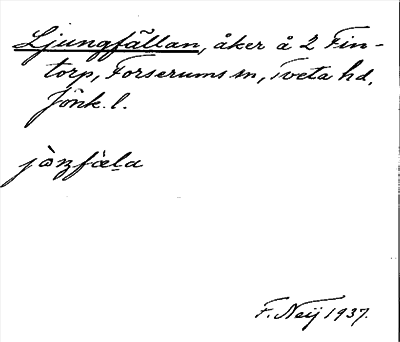 Ljungfällan, åker å 2 Fin-
torp, Forserums sn, Tveta hd,
Jönk. l.
jòŋfæ̀la
F. Neij 1937.